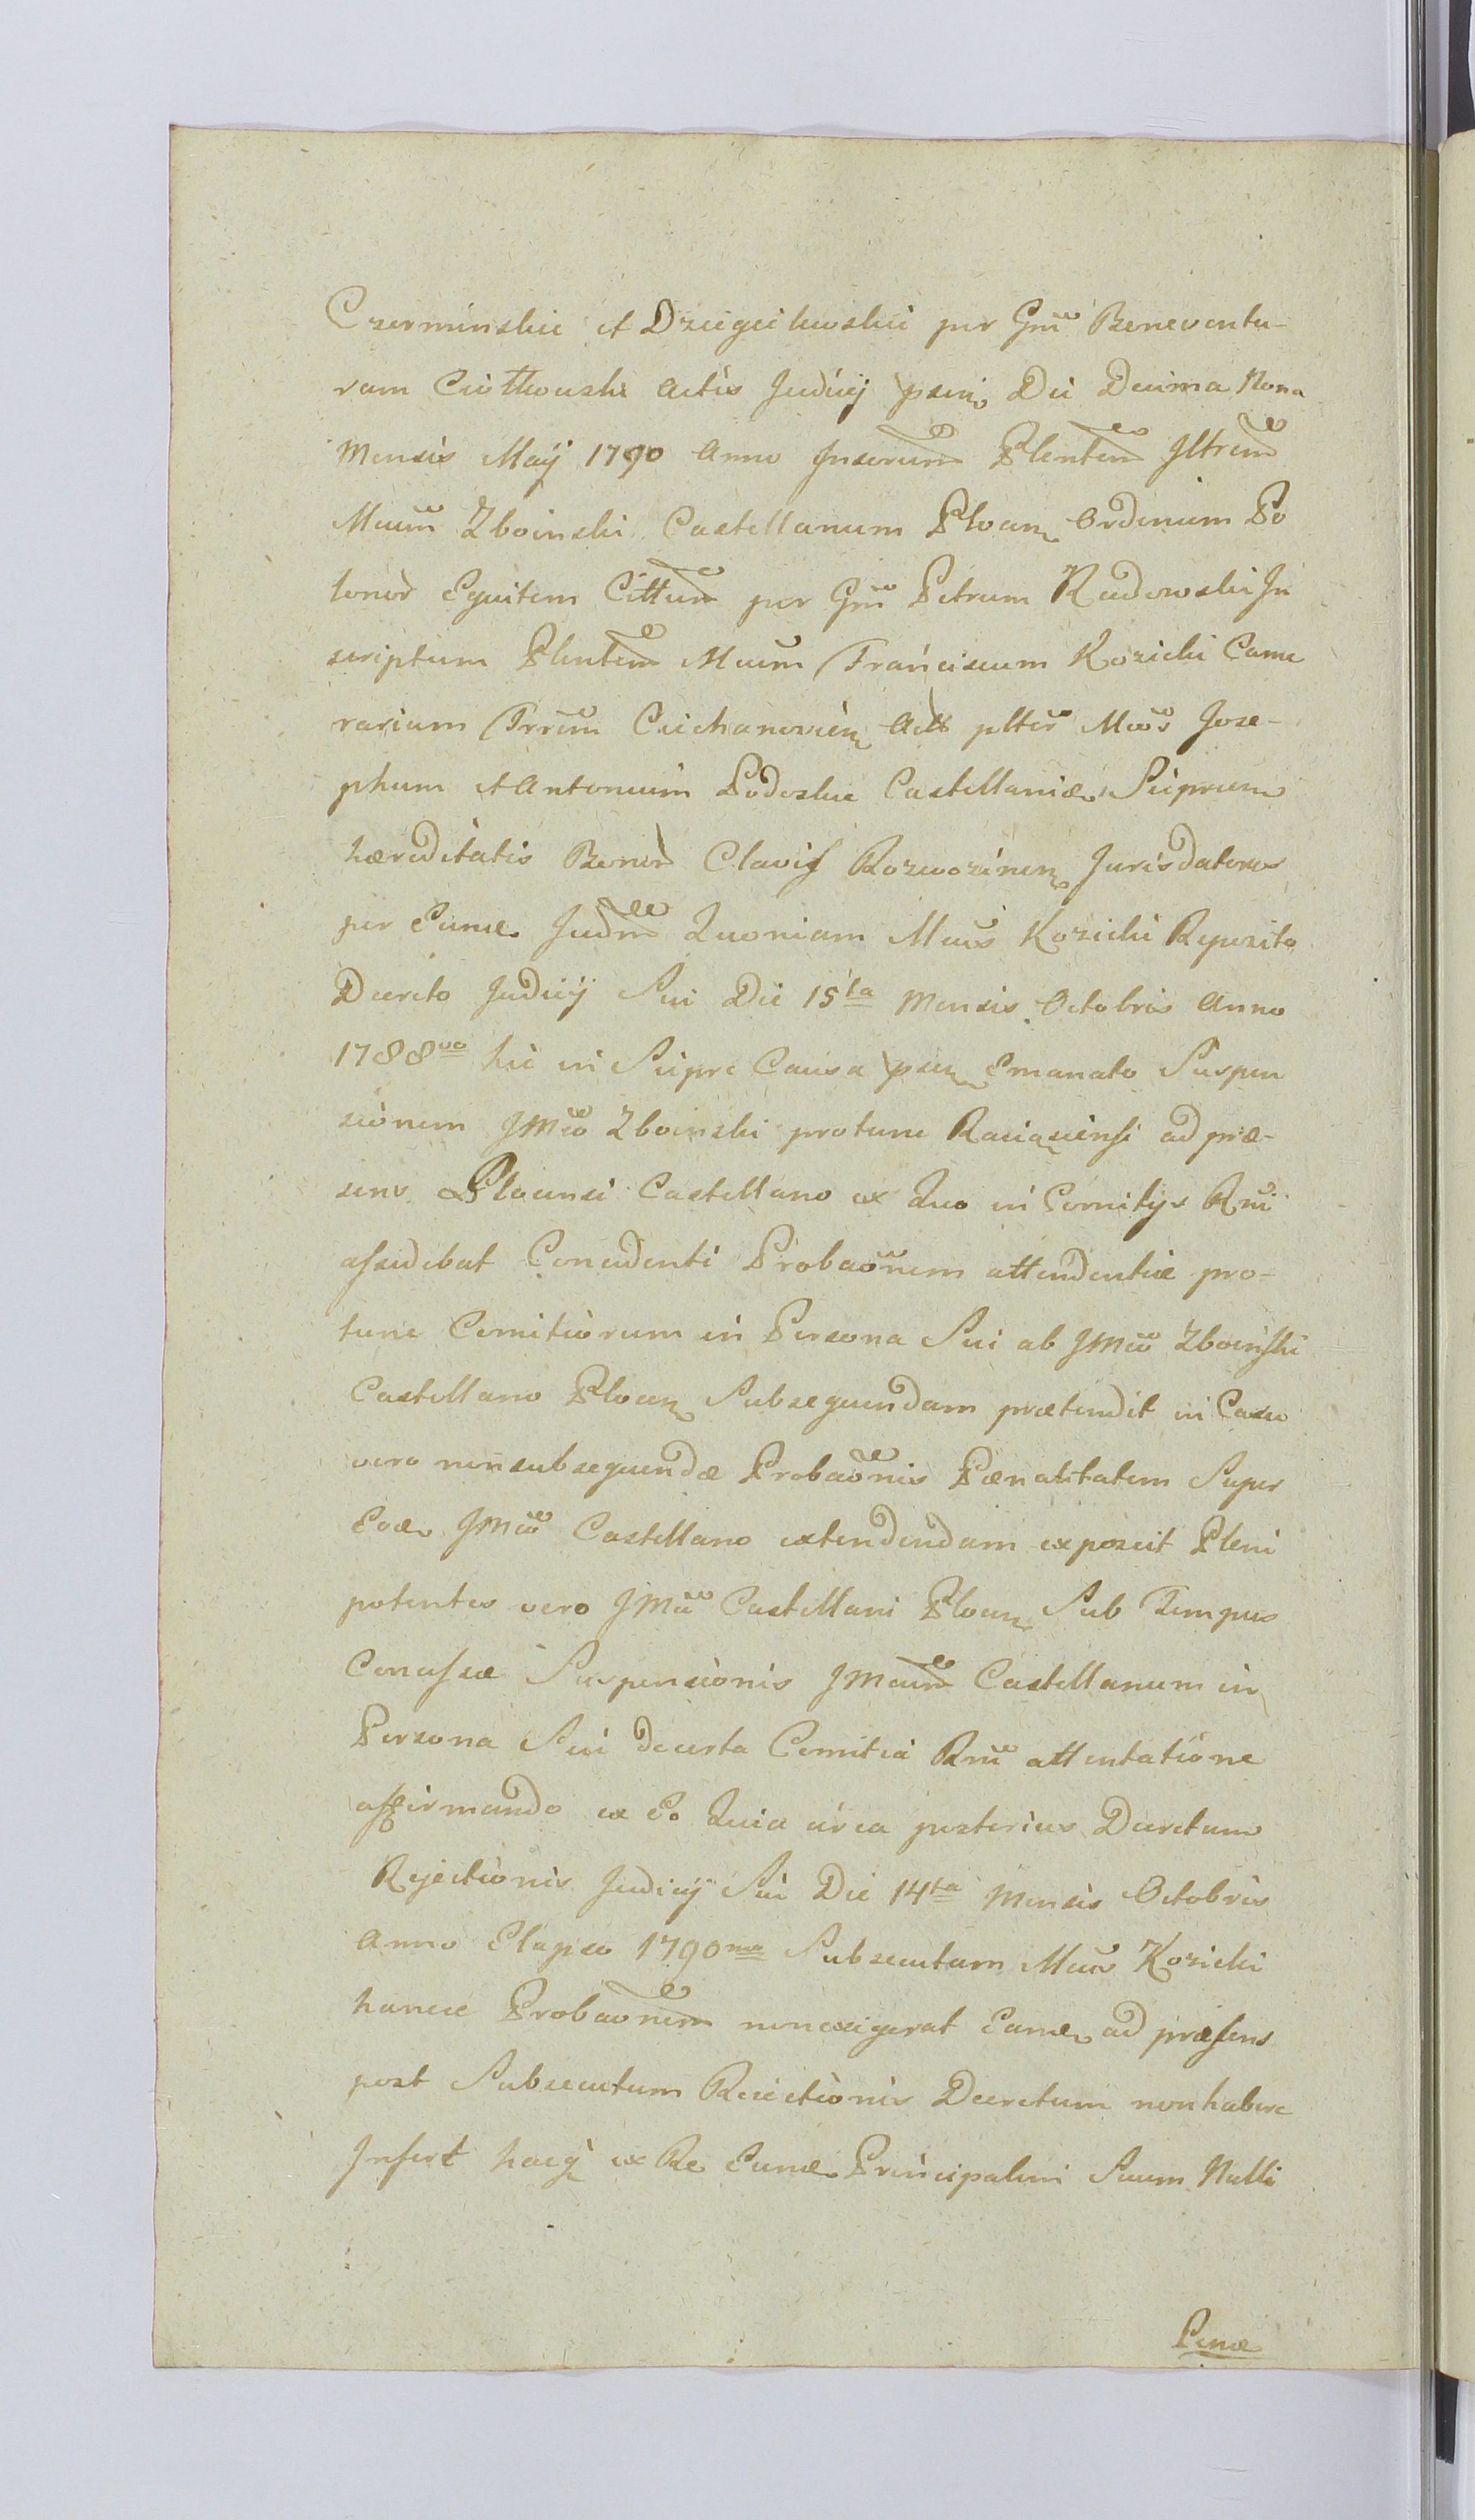 Czerminskie et Dziegielewskie per Gnm Beneventu-
ram Ciółkowski Actis Judicij psen Die Decima Nona
Mensis Maij 1790 Anno Inserum Plentem Illrem
Mcum Zboinski Castellanum Plocen Ordinum Po
lonor Equitem Cittum per Gnm Petrum Radowski In
scriptum Plentem Mcum Franciscum Kozicki Came
rarium Trrem Ciechanovien Act plter Mcos Jose-
phum et Antonium Podoskie Castellanic Suprem
hæreditatis Bonor Clavis Rozwozinen Jurisdatores
per Eunde Judm Quoniam Mcus Kozicki Reposito
Decreto Judicij Sui Die 15ta Mensis Octobris Anno
1788vo hic in Supre Causa psen Emanato Suspen
sionem JMco Zboinski protunc Raciąziensi ad præ-
sens Plocensi Castellano ex Quo in Comitijs Rni
assidebat Concedenti Probaonem attendentiæ pro-
tunc Comitiorum in Persona Sui ab JMco Zboinski
Castellano Plocen Subsequendam prætendit in Casu
vero non subsequendæ Probaonis Pænalitatem Super
Eode JMco Castellano extendendam exposcit Pleni
potentes vero JMci Castellani Plocen Sub Tempus
Concessæ Suspensionis JMcum Castellanum in
Persona Sui decerta Comitia Rni attentatione
affirmando ex Eo Quia circa posterius Decretum
Rejectionis Judicij Sui Die 14ta Mensis Octobris
Anno Elapso 1790mo Subsecutum Mcus Kozicki
hancce Probaonem non exigerat Eamde ad præsens
post Subsecutum Reiectionis Decretum non habere
Infert hacq ex Re Eunde Principalem Suum Nulli
Penæ